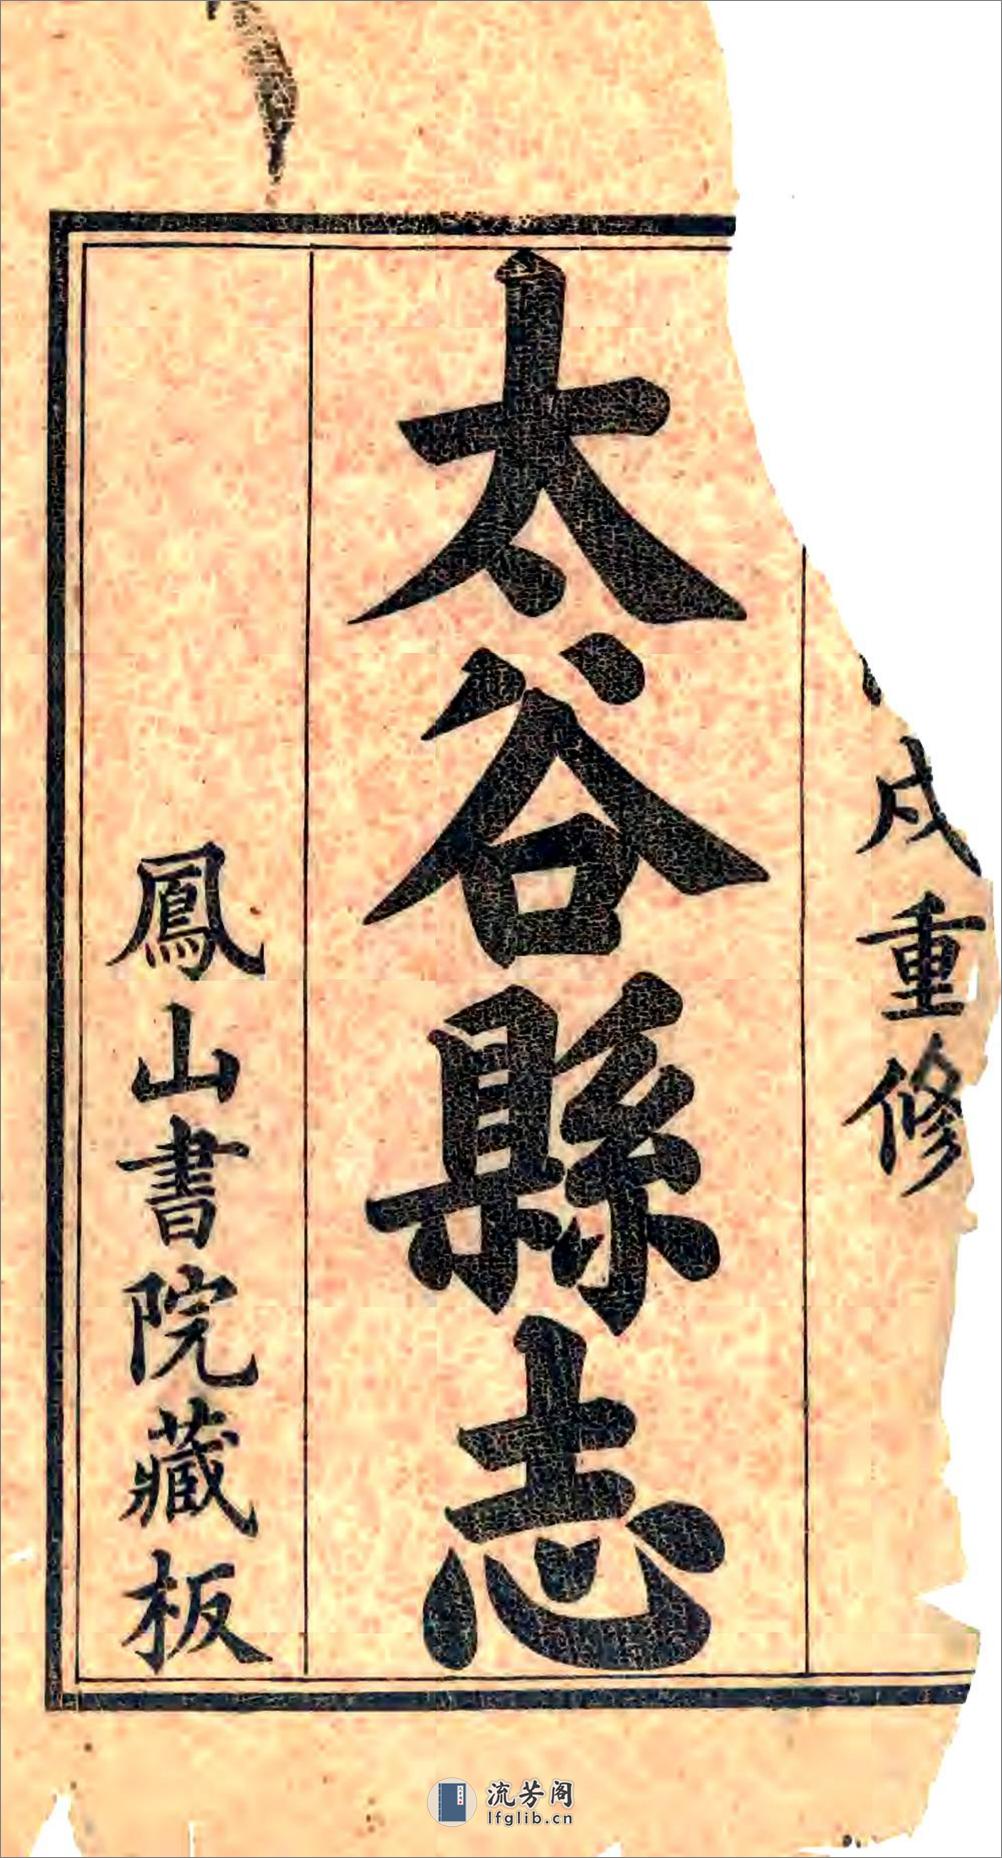 戌重修
太谷縣志
鳳山書院藏板
流芳阁
lfglib.cn